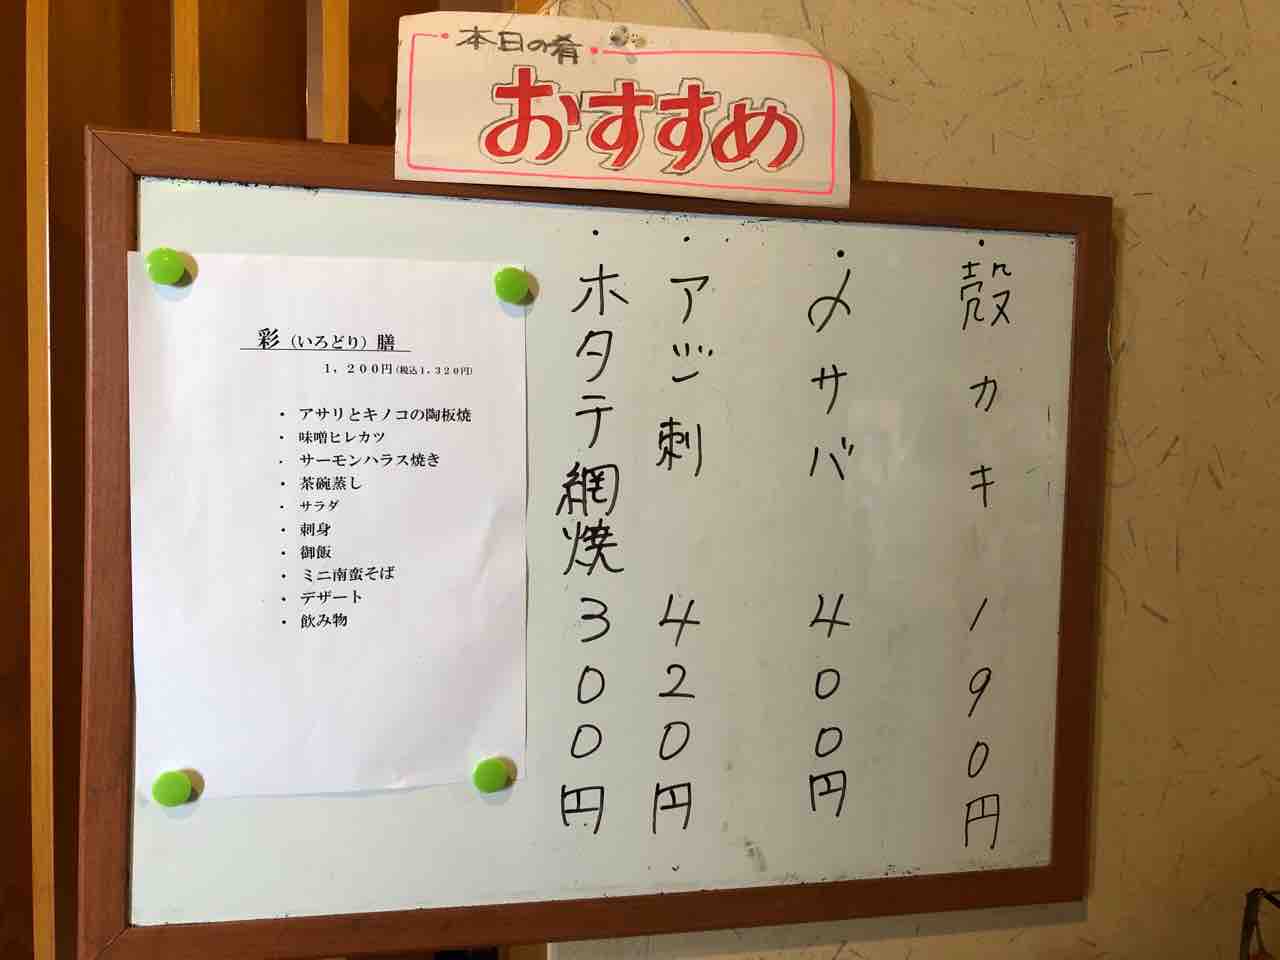 本日の肴
おすすめ
・殻カキ 190円
・〆サバ 400円
・アジ刺 420円
・ホタテ網焼 300円
彩（いろどり）膳
１，２００円（税込１，３２０円）
・ アサリとキノコの陶板焼
・ 味噌ヒレカツ
・ サーモンハラス焼き
・ 茶碗蒸し
・ サラダ
・ 刺身
・ 御飯
・ ミニ南蛮そば
・ デザート
・ 飲み物